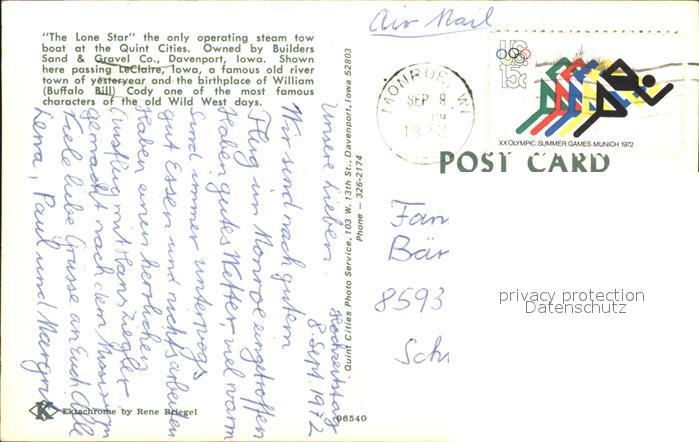 "The Lone Star" the only operating steam tow
boat at the Quint Cities. Owned by Builders
Sand & Gravel Co., Davenport, Iowa. Shown
here passing LeClaire, Iowa, a famous old river
town of yesteryear and the birthplace of William
(Buffalo Bill) Cody one of the most famous
characters of the old Wild West days.
Unsere Lieben.
8. Sept. 1972
Wir sind nach gutem
Flug in Monroe eingetroffen
Haben gutes Wetter, viel warm
Sind immer unterwegs
gut Essen und nichts arbeiten
Haben einen herrlichen
Ausflug mit Hans Ziegler
gemacht nach dem
Viele liebe Grüsse an Euch Alle
Lena, Paul und Margrit
Ektachrome by Rene Briegel
96540
Quint Cities Photo Service, 103 W. 13th St., Davenport, Iowa 52803
Phone — 326-2174
Air Mail
MONROE, WI
SEP 8
PM
1972
US
15c
XX OLYMPIC SUMMER GAMES MUNICH 1972
POST CARD
Fam
Bär
8593
Sch
privacy protection
Datenschutz